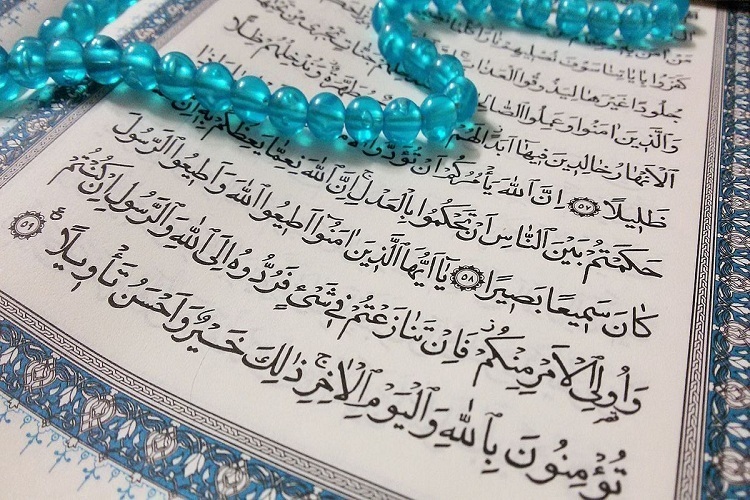 كَفَرُوا بِاٰيَاتِنَا سَوْفَ نُصْلِيهِمْ نَارًا
جُلُودًا غَيْرَهَا لِيَذُوقُوا الْعَذَابَ
وَالَّذِينَ اٰمَنُوا وَعَمِلُوا الصَّالِحَاتِ
الْاَنْهَارُ خَالِدِينَ فِيهَا اَبَدًا لَهُمْ مُطَهَّرَةٌ وَنُدْخِلُهُمْ ظِلًّا
ظَلِيلًا ﴿٥٧﴾ اِنَّ اللّٰهَ يَأْمُرُكُمْ اَنْ تُؤَدُّوا
حَكَمْتُمْ بَيْنَ النَّاسِ اَنْ تَحْكُمُوا بِالْعَدْلِ اِنَّ اللّٰهَ نِعِمَّا يَعِظُكُمْ بِهِ
كَانَ سَمِيعًا بَصِيرًا ﴿٥٨﴾ يَا اَيُّهَا الَّذِينَ اٰمَنُوا اَطِيعُوا اللّٰهَ وَاَطِيعُوا الرَّسُولَ
وَاُولِي الْاَمْرِ مِنْكُمْ فَاِنْ تَنَازَعْتُمْ فِي شَيْءٍ فَرُدُّوهُ اِلَى اللّٰهِ وَالرَّسُولِ اِنْ كُنْتُمْ
تُؤْمِنُونَ بِاللّٰهِ وَالْيَوْمِ الْاٰخِرِ ذٰلِكَ خَيْرٌ وَاَحْسَنُ تَأْوِيلًا ﴿٥٩﴾